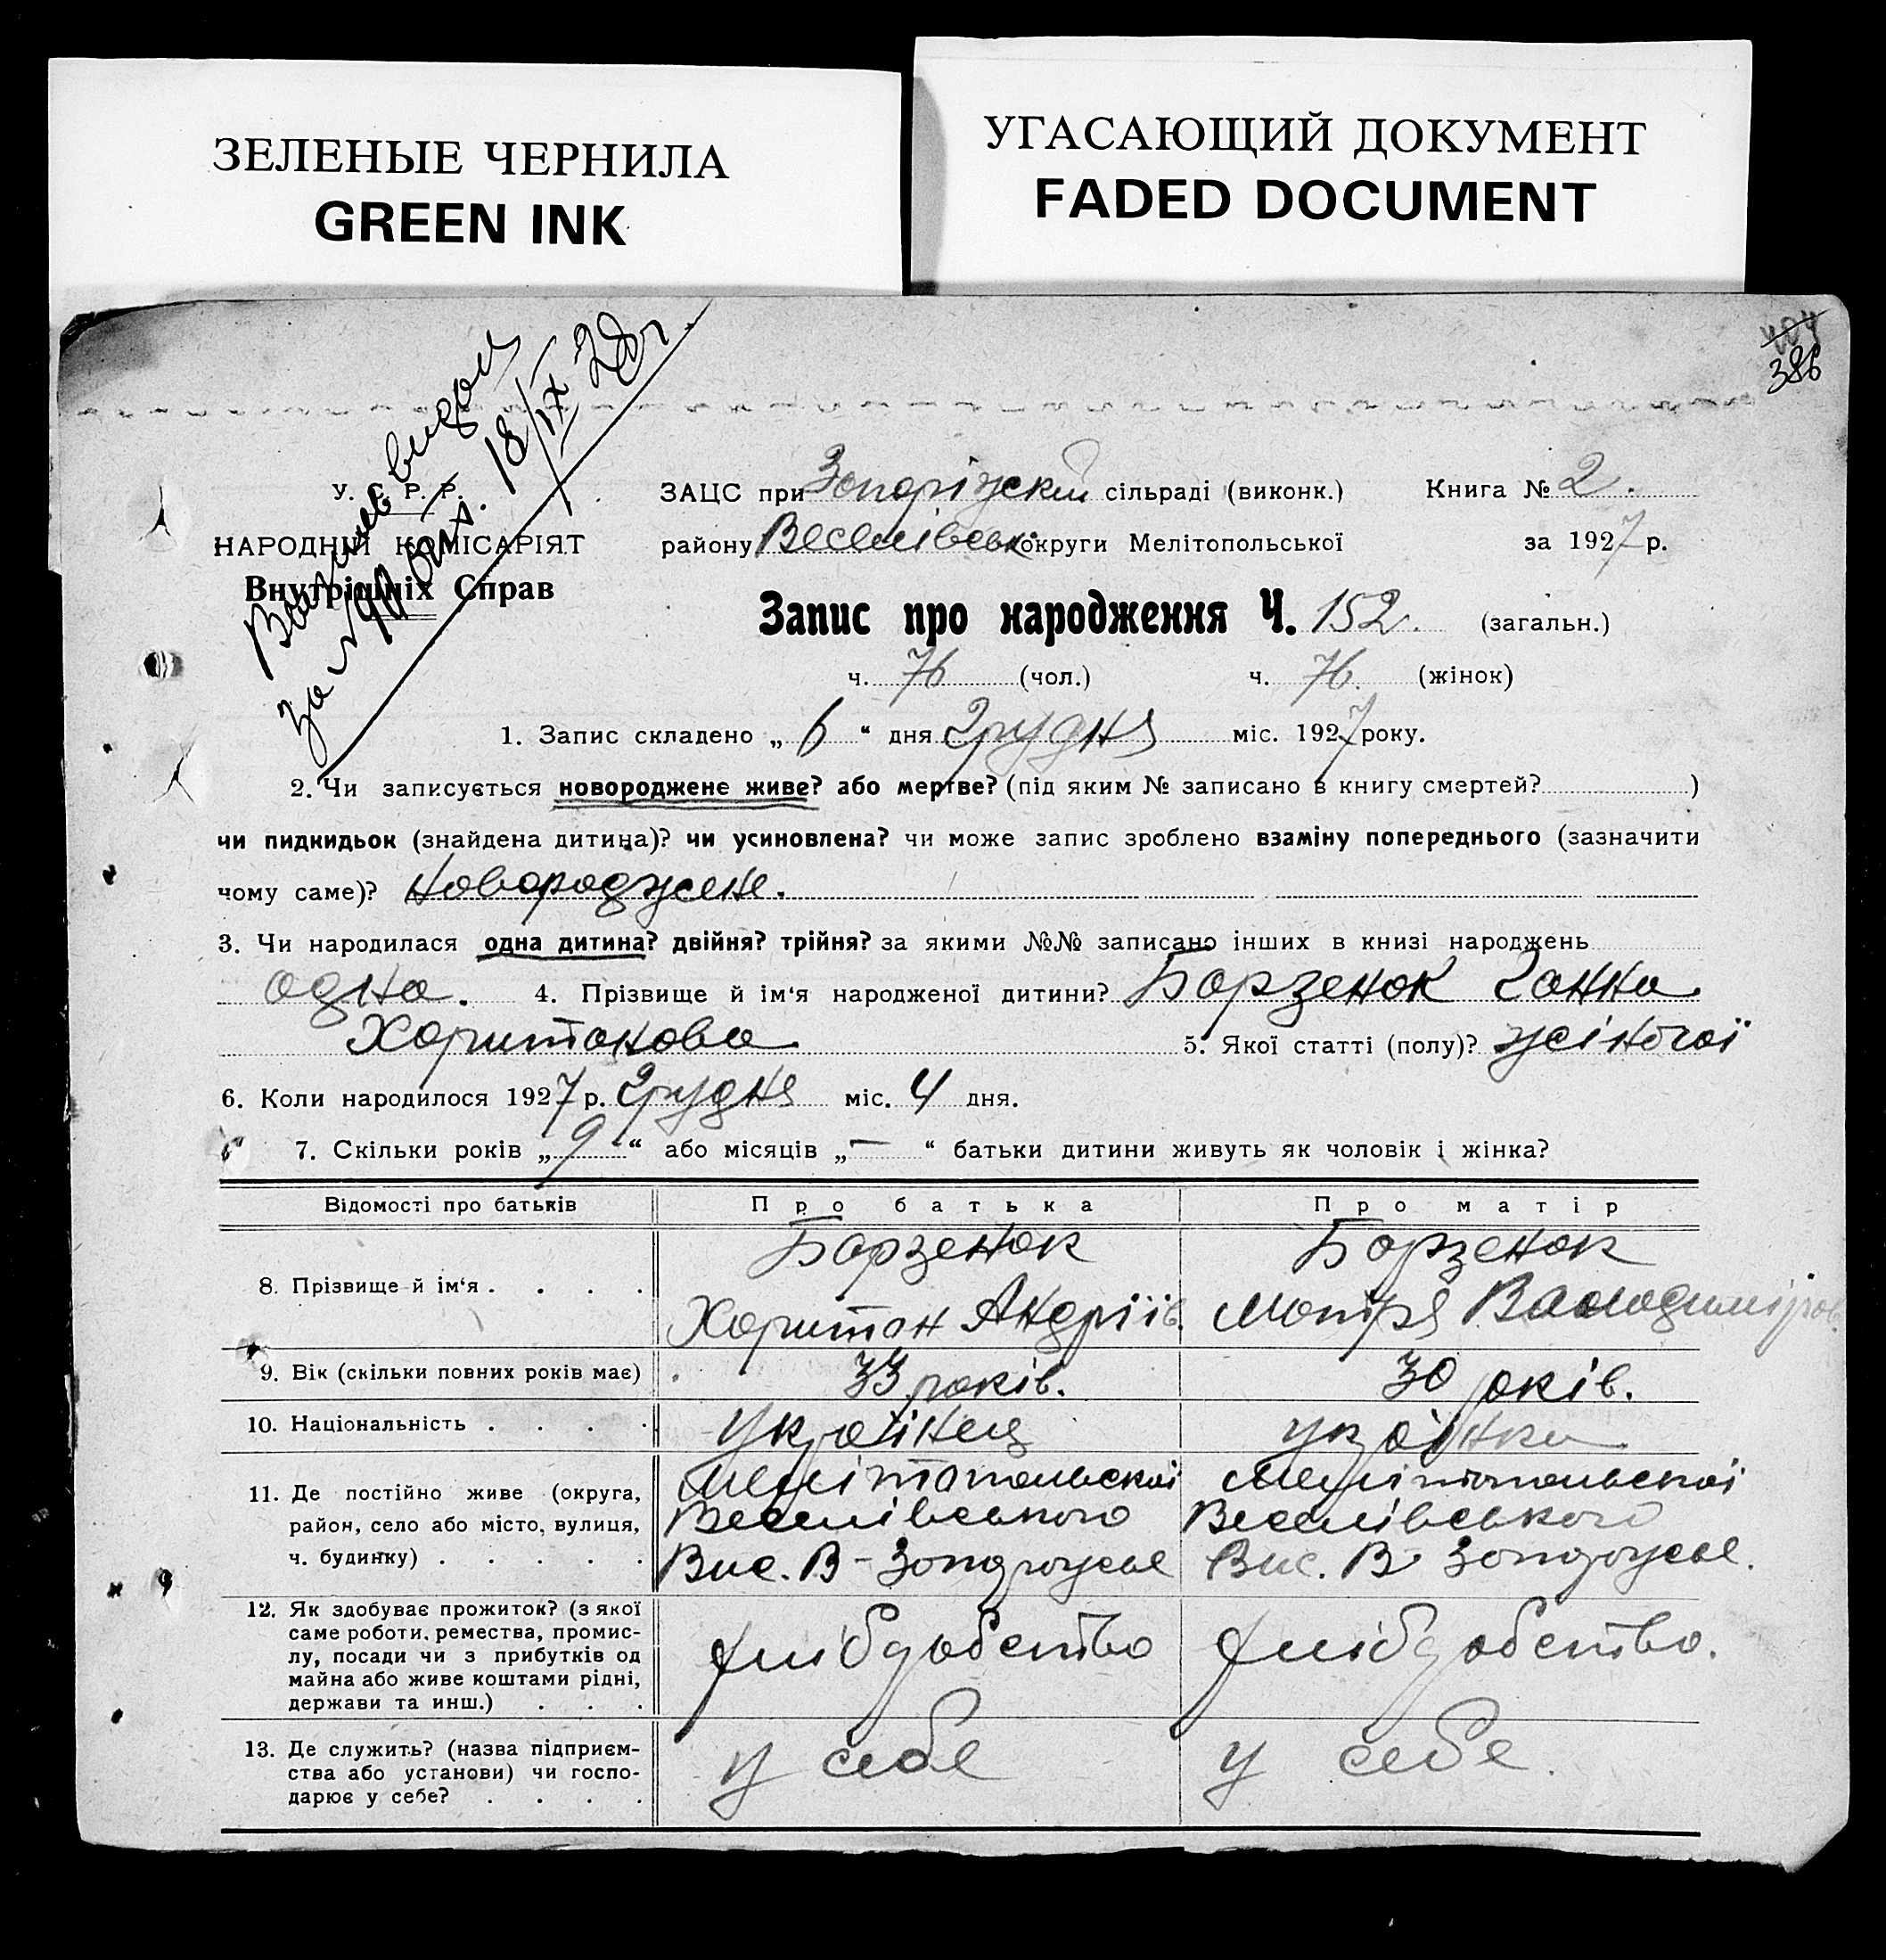 ЗЕЛЕНЫЕ ЧЕРНИЛА
GREEN INK
УГАСАЮЩИЙ ДОКУМЕНТ
FADED DOCUMENT
404
386
видан
за № 18/IX 28 г.
У. С. Р. Р.
НАРОДНІЙ КОМІСАРІЯТ
Внутрішніх Справ
ЗАЦС при Запоріжскій сільраді (виконк.) Книга № 2.
району Веселівськ округи Мелітопольської за 1927 р.
Запис про народження Ч. 152. (загальн.)
ч. 76 (чол.) ч. 76. (жінок)
1. Запис складено „ 6 “ дня Грудня міс. 1927 року.
2. Чи записується новороджене живе? або мертве? (під яким № записано в книгу смертей? )
чи пидкидьок (знайдена дитина)? чи усиновлена? чи може запис зроблено взаміну попереднього (зазначити
чому саме)? Новороджене.
3. Чи народилася одна дитина? двійня? трійня? за якими №№ записано інших в книзі народжень
одна. 4. Прізвище й ім'я народженої дитини? Борзенок Ганна
Харитонова 5. Якої статті (полу)? жіночої
6. Коли народилося 1927 р. Грудня міс. 4 дня.
7. Скільки років „ 9 “ або місяців „ — “ батьки дитини живуть як чоловік і жінка?
Відомості про батьків Про батька Про матір
8. Прізвище й ім'я . . . . Борзенок Борзенок
Харитон Андріїв. Мотря Володимиров.
9. Вік (скільки повних років має) 33 років. 30 років.
10. Національність . . . . українец українка
11. Де постійно живе (округа, Мелітопольскої Мелітопольскої
район, село або місто, вулиця, Веселівського Веселівського
ч. будинку) . . . . . Вис. В-Запорожье Вис. В-Запорожье.
12. Як здобуває прожиток? (з якої
саме роботи, ремества, промис-
лу, посади чи з прибутків од хлібдобство хлібдобство.
майна або живе коштами рідні,
держави та инш.) . . .
13. Де служить? (назва підприєм-
ства або установи) чи госпо- у себе у себе.
дарює у себе? . . . .